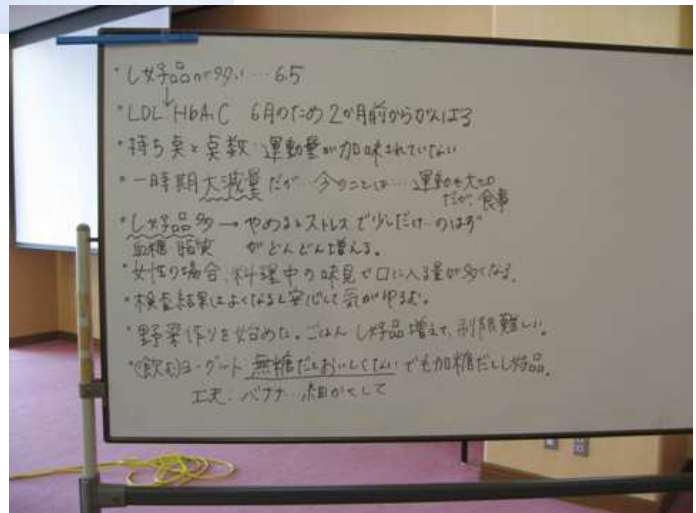 ・し好品が多い…6.5
・LDL HbA1C 6月のため2か月前からがんばる
・持ち点と点数 運動量が加味されていない
・一時期大減量だが…今のことは…運動も大切
だが、食事
・し好品多→やめるとストレスで少しだけ…のはず
血糖・脂質 がどんどん増える。
・女性の場合、料理中の味見で口に入る量が多くなる。
・検査結果はよくなると安心して気がゆるむ。
・野菜作りを始めた。ごはん し好品増えて、制限難しい。
・(飲む)ヨーグルト 無糖だとおいしくない でも加糖だとし好品。
工夫：バナナ…細かくして